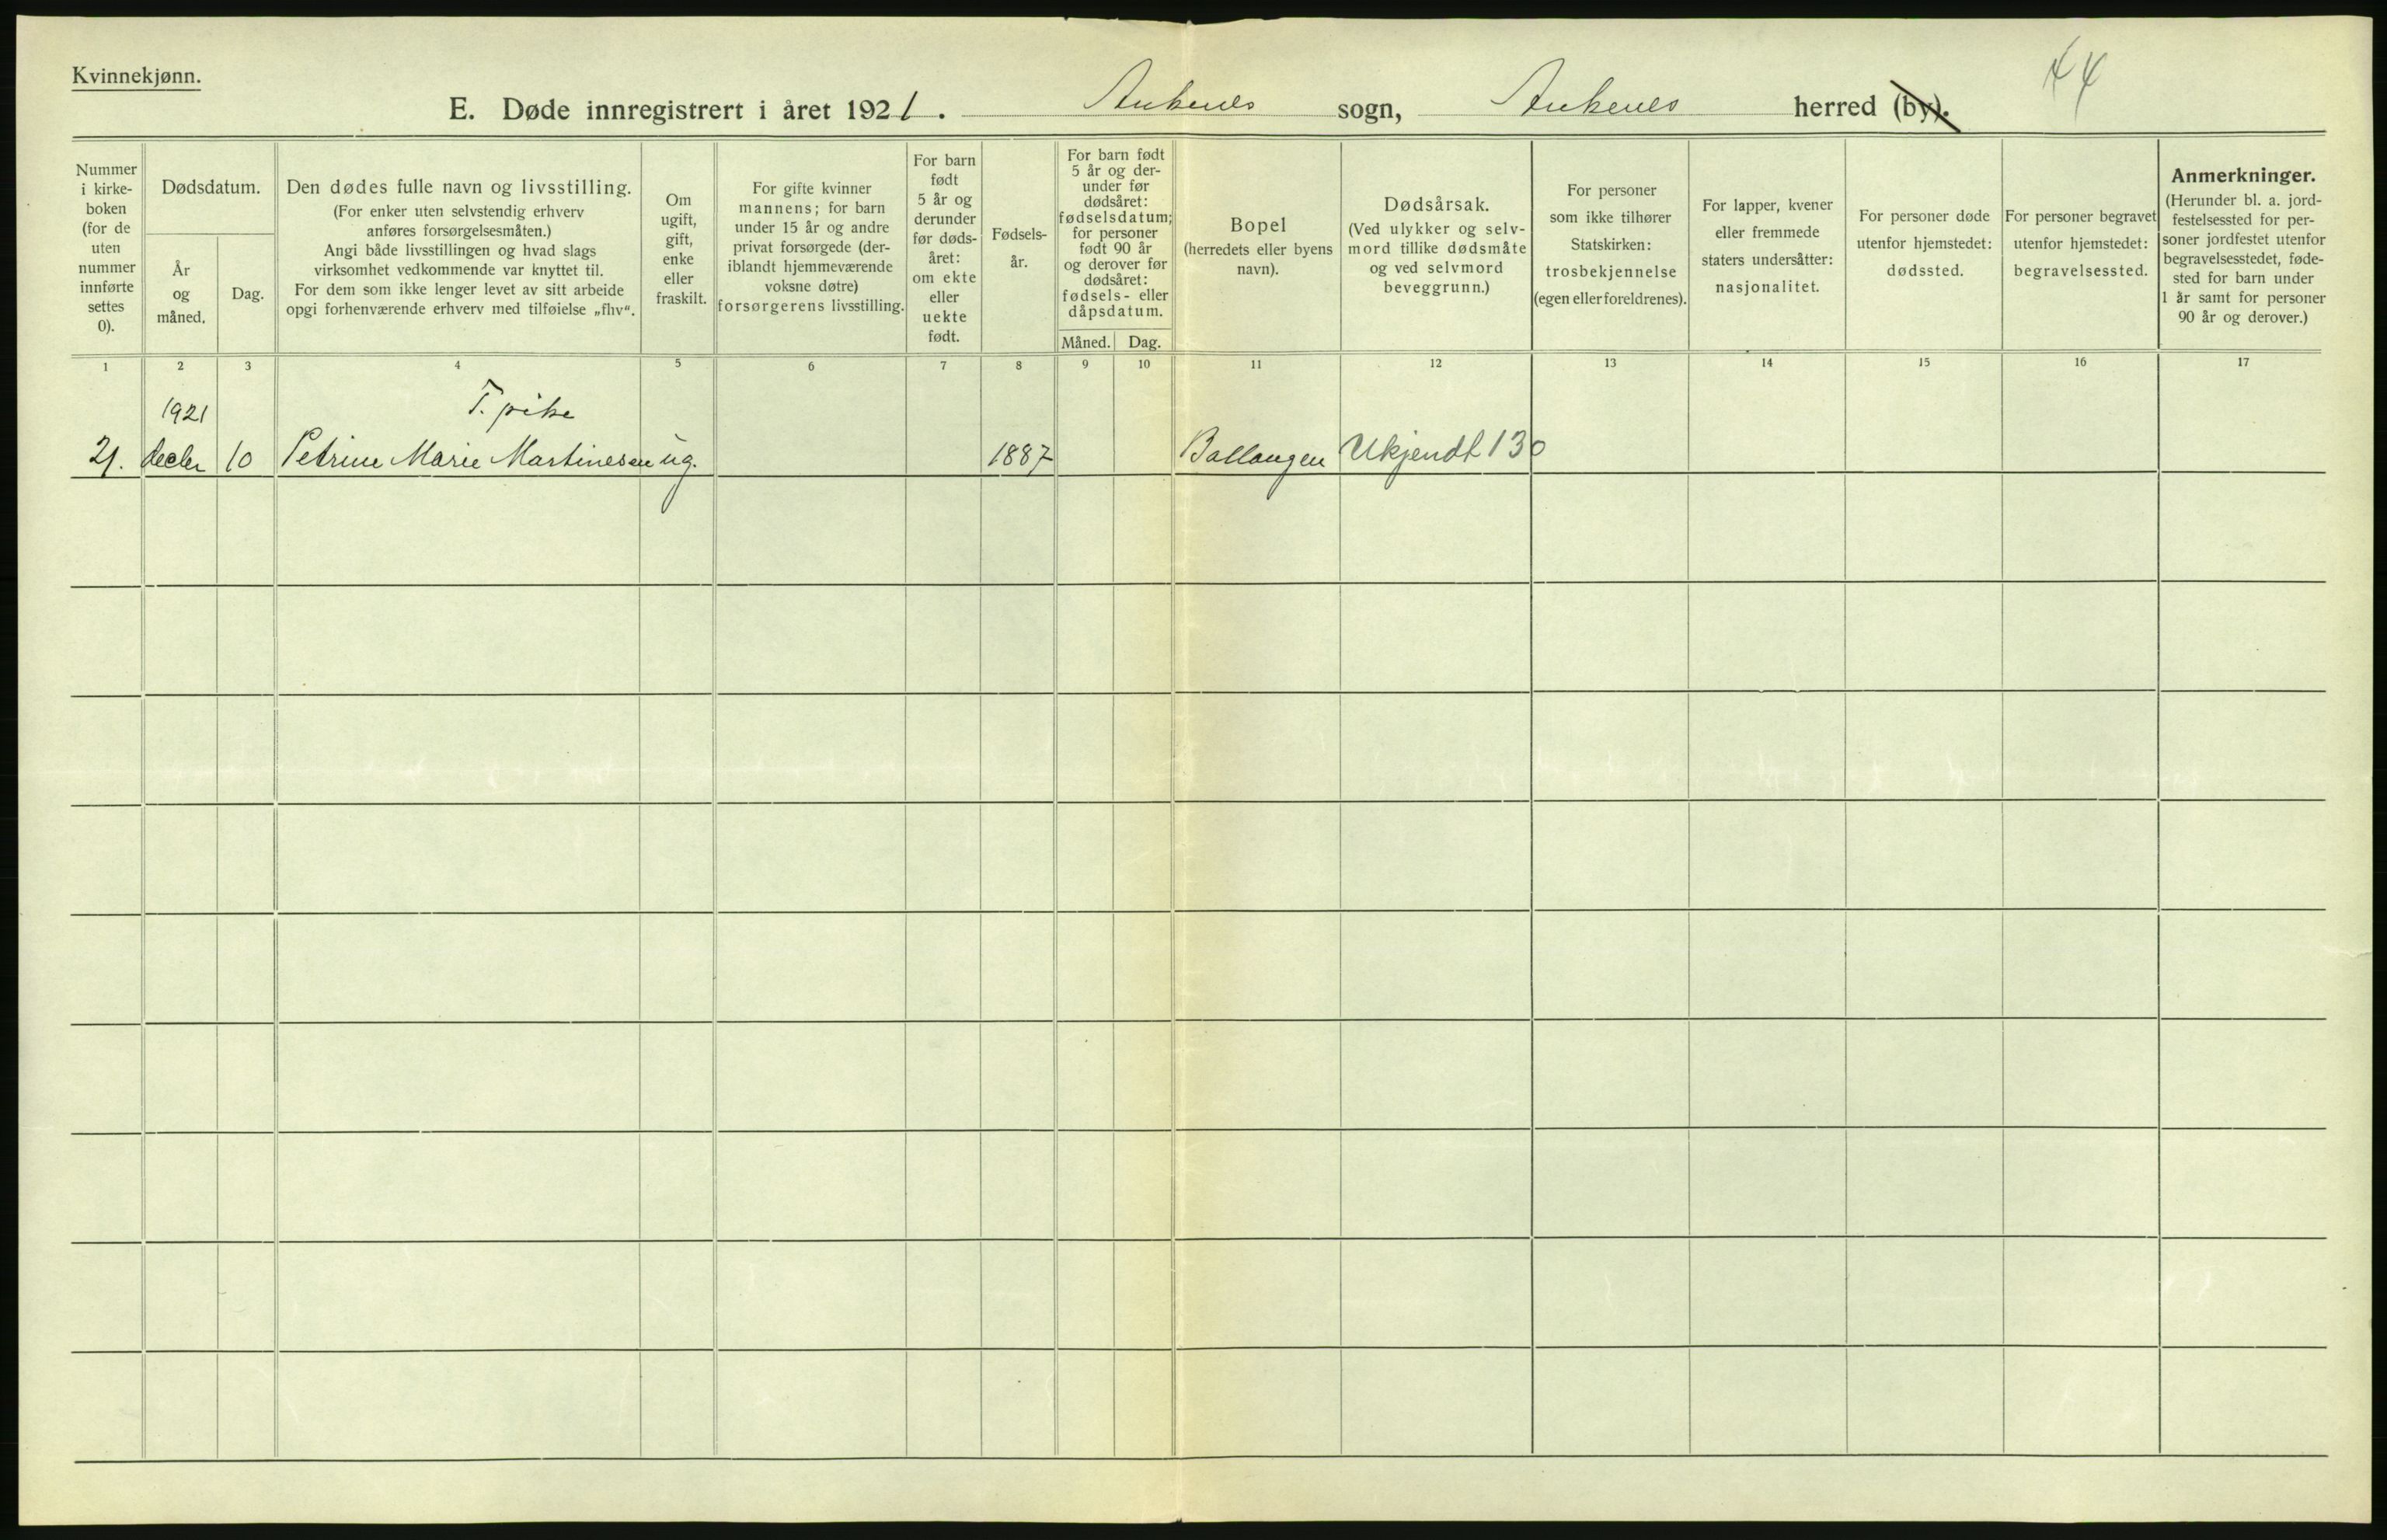 44
Kvinnekjønn.
E. Døde innregistrert i året 1921. Ankenes sogn, Ankenes herred (by).
Nummer
i kirke-
boken
(for de
uten
nummer
innførte
settes
0).
Dødsdatum.
År
og
måned.
Dag.
Den dødes fulle navn og livsstilling.
(For enker uten selvstendig erhverv
anføres forsørgelsesmåten.)
Angi både livsstillingen og hvad slags
virksomhet vedkommende var knyttet til.
For dem som ikke lenger levet av sitt arbeide
opgi forhenværende erhverv med tilføielse „fhv“.
Om
ugift,
gift,
enke
eller
fraskilt.
For gifte kvinner
mannens; for barn
under 15 år og andre
privat forsørgede (der-
iblandt hjemmeværende
voksne døtre)
forsørgerens livsstilling.
For barn
født
5 år og
derunder
før døds-
året:
om ekte
eller
uekte
født.
Fødsels-
år.
For barn født
5 år og der-
under før
dødsåret:
fødselsdatum;
for personer
født 90 år
og derover før
dødsåret:
fødsels- eller
dåpsdatum.
Måned. Dag.
Bopel
(herredets eller byens
navn).
Dødsårsak.
(Ved ulykker og selv-
mord tillike dødsmåte
og ved selvmord
beveggrunn.)
For personer
som ikke tilhører
Statskirken:
trosbekjennelse
(egen eller foreldrenes).
For lapper, kvener
eller fremmede
staters undersåtter:
nasjonalitet.
For personer døde
utenfor hjemstedet:
dødssted.
For personer begravet
utenfor hjemstedet:
begravelsessted.
Anmerkninger.
(Herunder bl. a. jord-
festelsessted for per-
soner jordfestet utenfor
begravelsesstedet, føde-
sted for barn under
1 år samt for personer
90 år og derover.)
1 2 3 4 5 6 7 8 9 10 11 12 13 14 15 16 17
1921 T. pike
21. decbr 10 Petrine Marie Martinesen ug. 1887 Ballangen Ukjendt 130